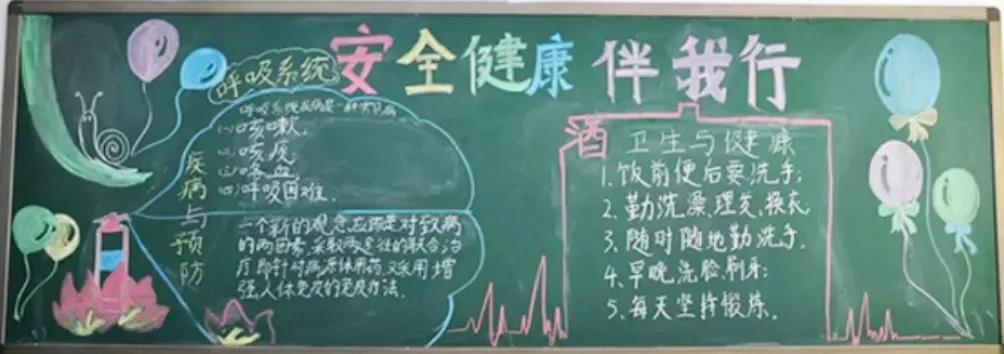 安全健康伴我行
呼吸系统
呼吸系统疾病是一种常见病
(一)咳嗽.
(二)咳痰.
(三)咯血.
(四)呼吸困难.
疾病与预防
一个新的观念应该是对致病
的两因素,采取两途径的联合治
疗即针对病原体用药又采用增
强人体免疫的免疫疗法.
酒
卫生与健康
1.饭前便后要洗手;
2.勤洗澡、理发、换衣.
3.随时随地勤洗手.
4.早晚洗脸、刷牙;
5.每天坚持锻炼.